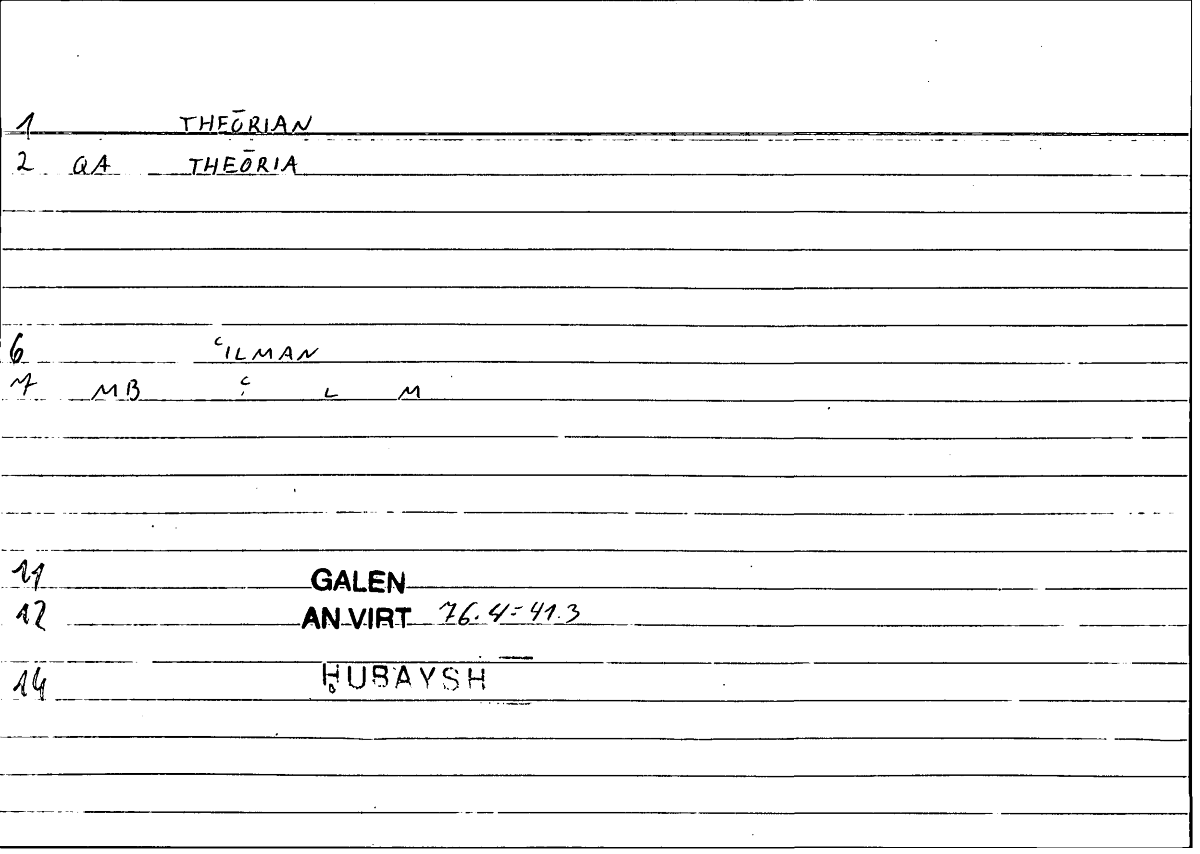 1 THEŌRIAN
2 QA THEŌRIA
6 ʿILMAN
7 MB ʿ L M
11 GALEN
12 AN VIRT 76.4=41.3
14 ḤUBAYSH